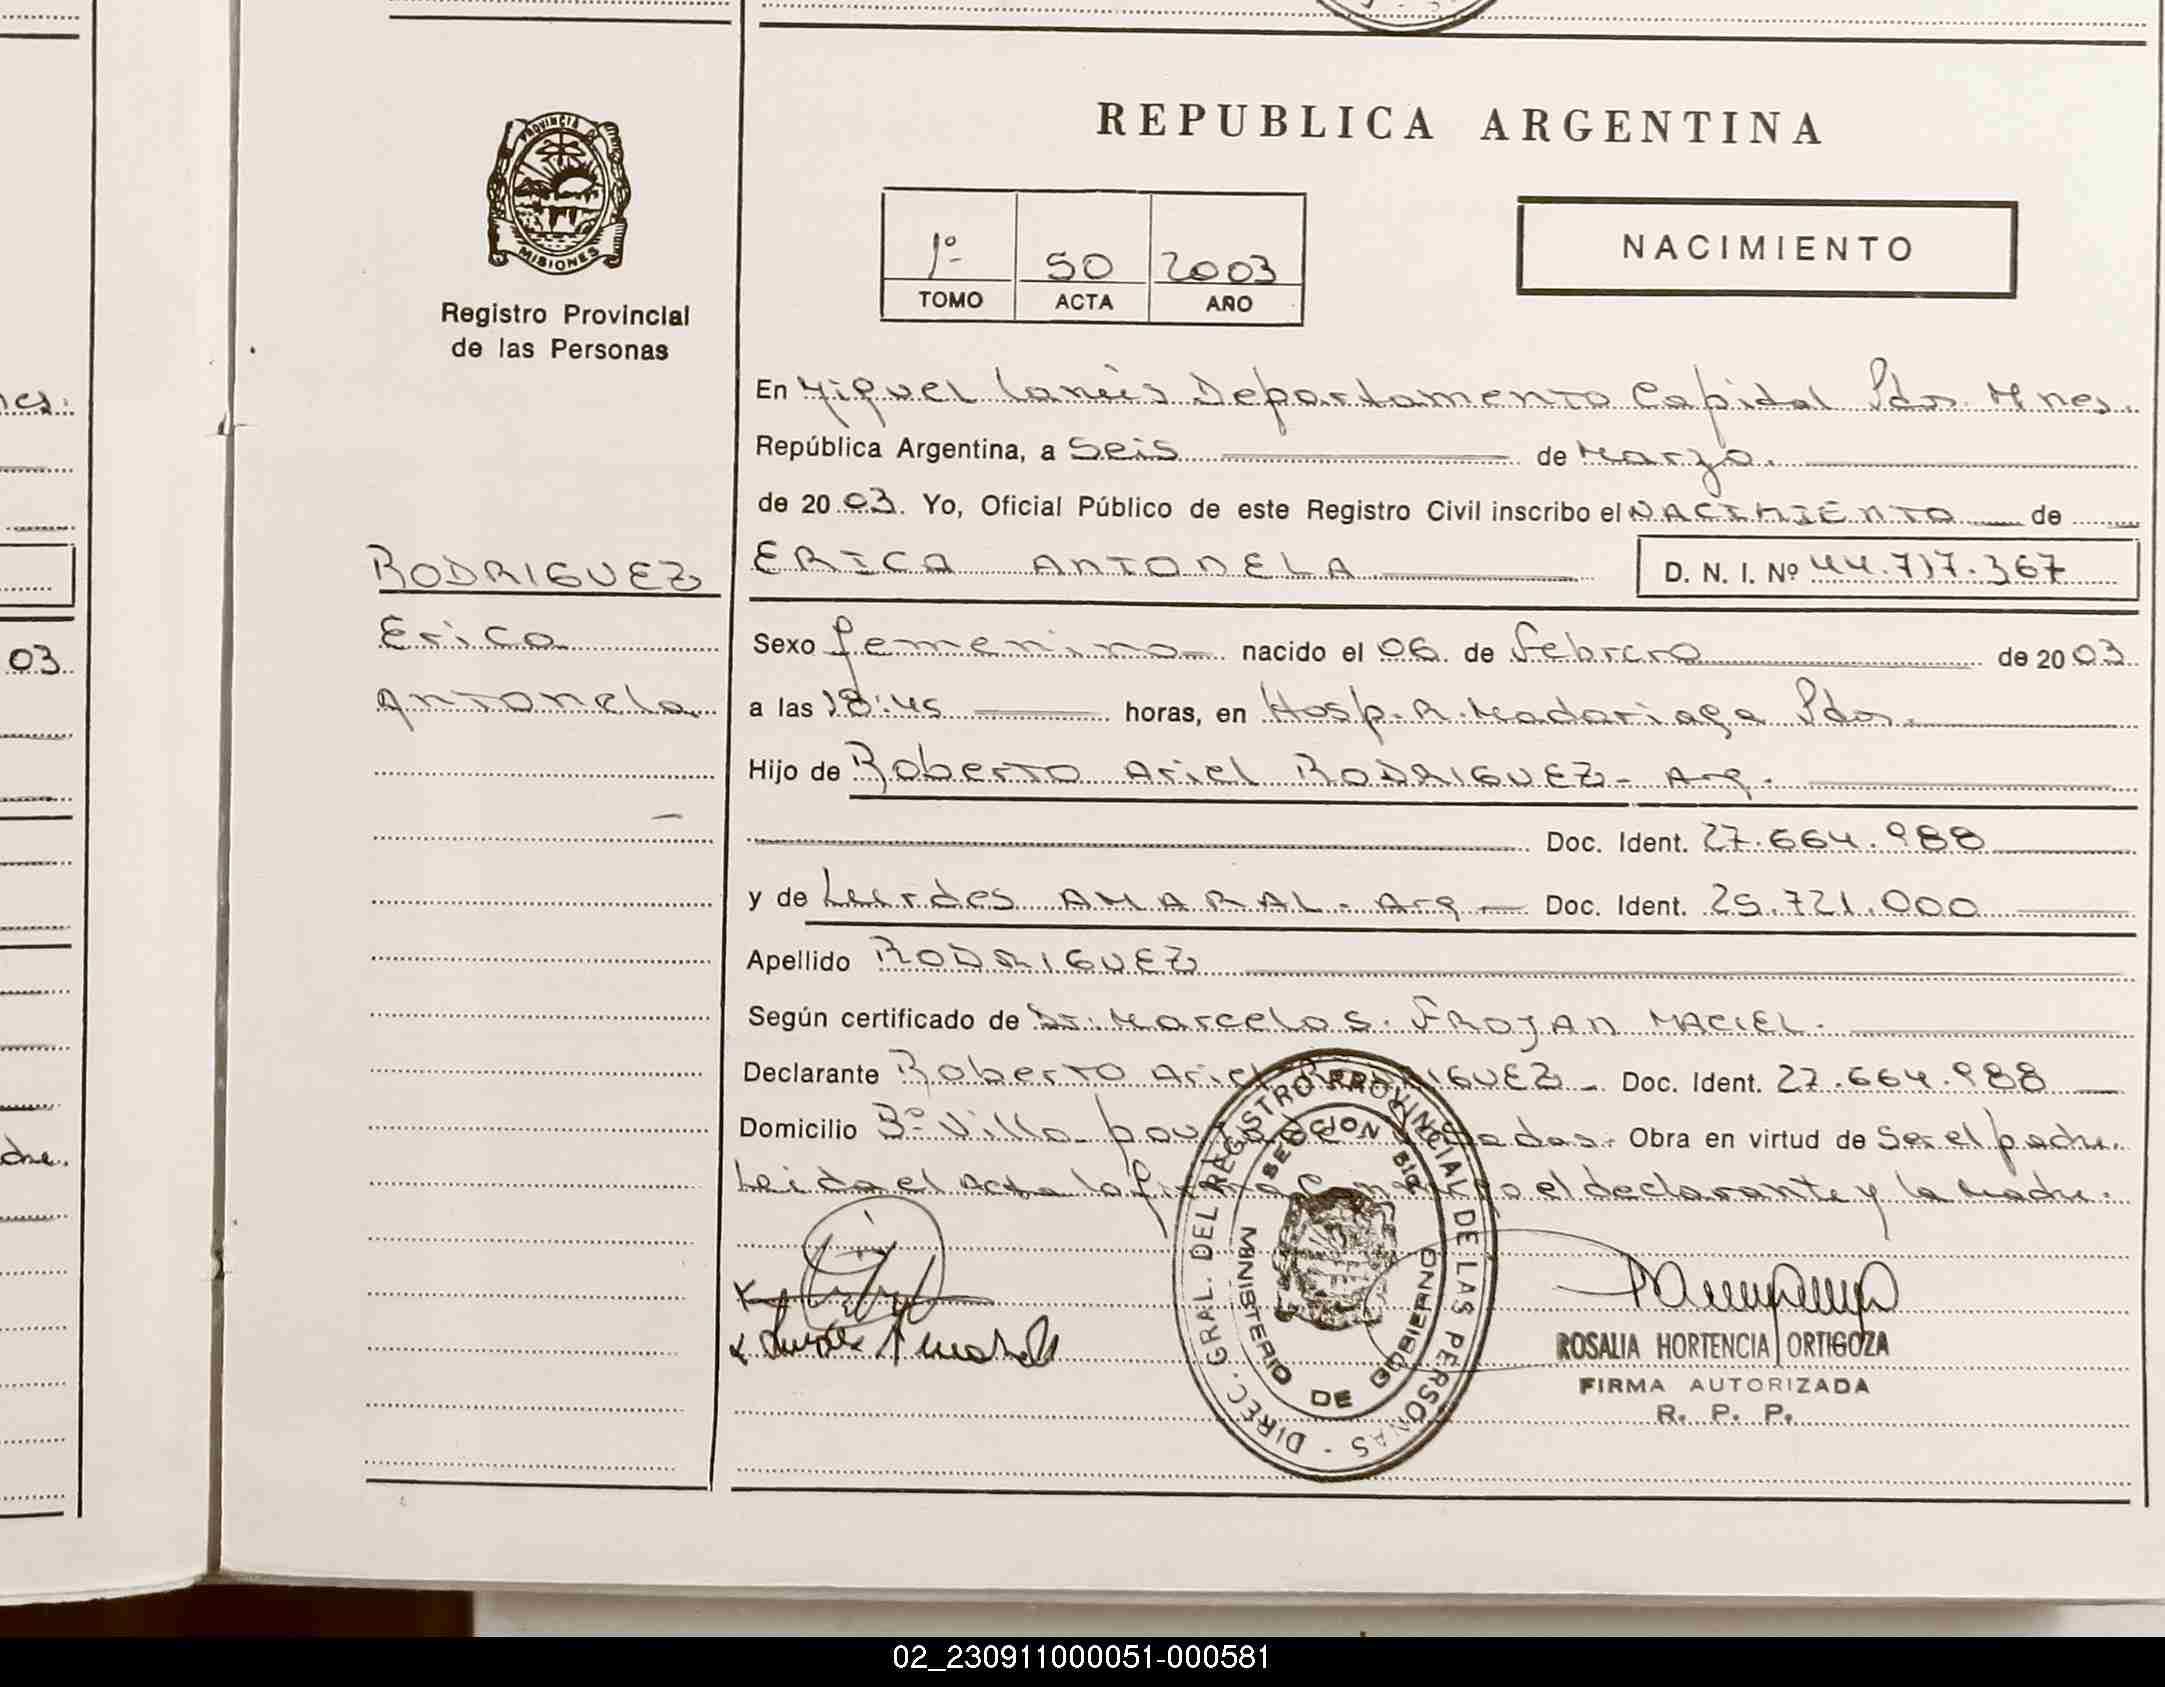 REPUBLICA ARGENTINA
PROVINCIA DE MISIONES
Registro Provincial
de las Personas
1º 50 2003
TOMO ACTA AÑO
NACIMIENTO
En Miguel Lanús Departamento Capital Pdas. Mnes.
República Argentina, a Seis de Marzo.
de 2003. Yo, Oficial Público de este Registro Civil inscribo el NACIMIENTO de
RODRIGUEZ
ERICA ANTONELA
D. N. I. Nº 44.717.367
Erica
Sexo femenino nacido el 06 de febrero de 2003
Antonela
a las 18:45 horas, en Hosp. R. Madariaga Pdas.
Hijo de Roberto Ariel RODRIGUEZ - Arg.
Doc. Ident. 27.664.988
y de Lourdes AMARAL - Arg - Doc. Ident. 25.721.000
Apellido RODRIGUEZ
Según certificado de Dr. Marcelo S. FROJAN MACIEL.
Declarante Roberto Ariel RODRIGUEZ - Doc. Ident. 27.664.988
Domicilio Bº Villa Posadas. Obra en virtud de Ser el padre.
Leida el Acta la el declarante y la Madre.
DIREC. GRAL. DEL REGISTRO PROVINCIAL DE LAS PERSONAS
MINISTERIO DE GOBIERNO
ROSALIA HORTENCIA ORTIGOZA
FIRMA AUTORIZADA
R. P. P.
nes.
03
dre.
02_230911000051-000581